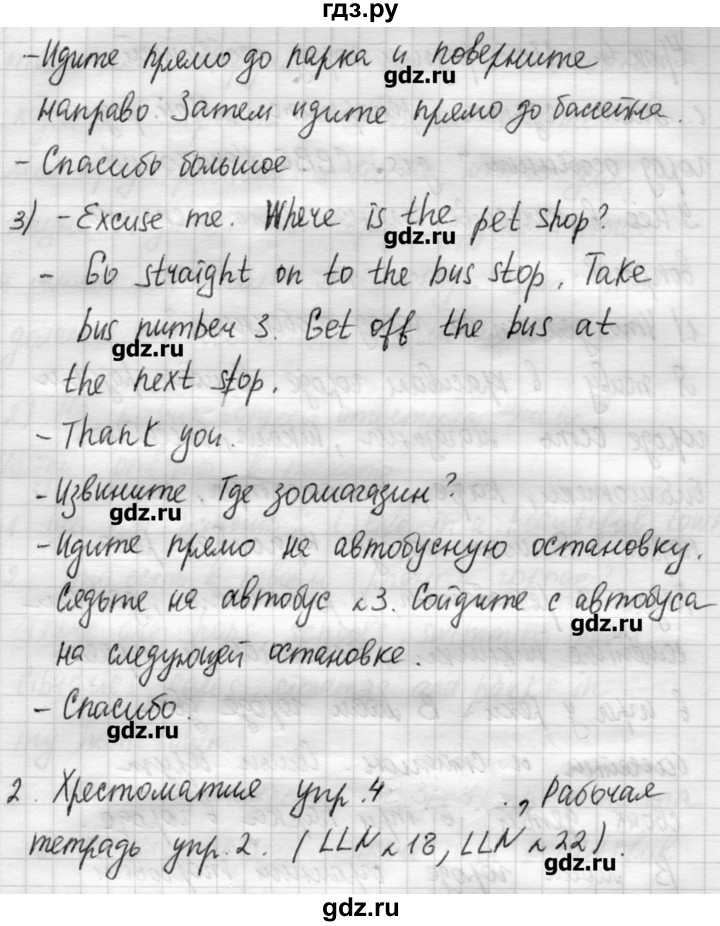 гдз.ру
- Идите прямо до парка и поверните
gdz.ru
направо. Затем идите прямо до бассейна.
- Спасибо большое.
3) - Excuse me. Where is the pet shop?
gdz.ru
- Go straight on to the bus stop. Take
bus number 3. Get off the bus at
gdz.ru
the next stop.
- Thank you.
- Извините. Где зоомагазин?
gdz.ru
- Идите прямо на автобусную остановку.
Сядьте на автобус №3. Сойдите с автобуса
gdz.ru
на следующей остановке.
- Спасибо.
gdz.ru
2. Хрестоматия упр. 4 , Рабочая
тетрадь упр. 2. (LLN 18, LLN 22).
gdz.ru
gdz.ru